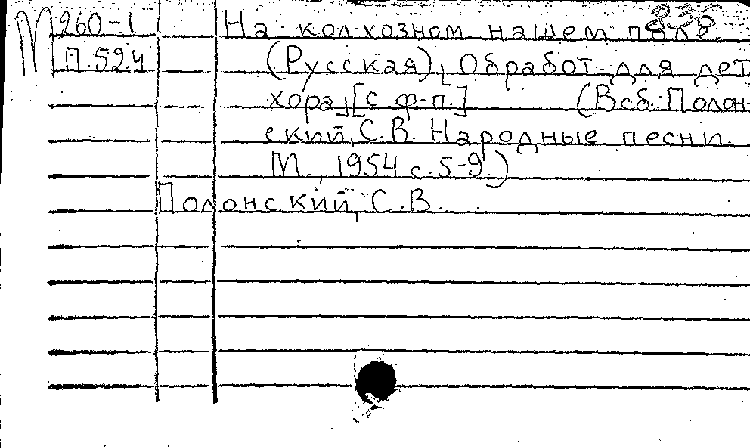 М 260-1 На колхозном нашем поле
П 524 (Русская), Обработ. для дет
хора, [с ф-п.] (В сб: Полон-
ский, С.В. Народные песни.
М., 1954 с. 5-9)
Полонский, С.В.